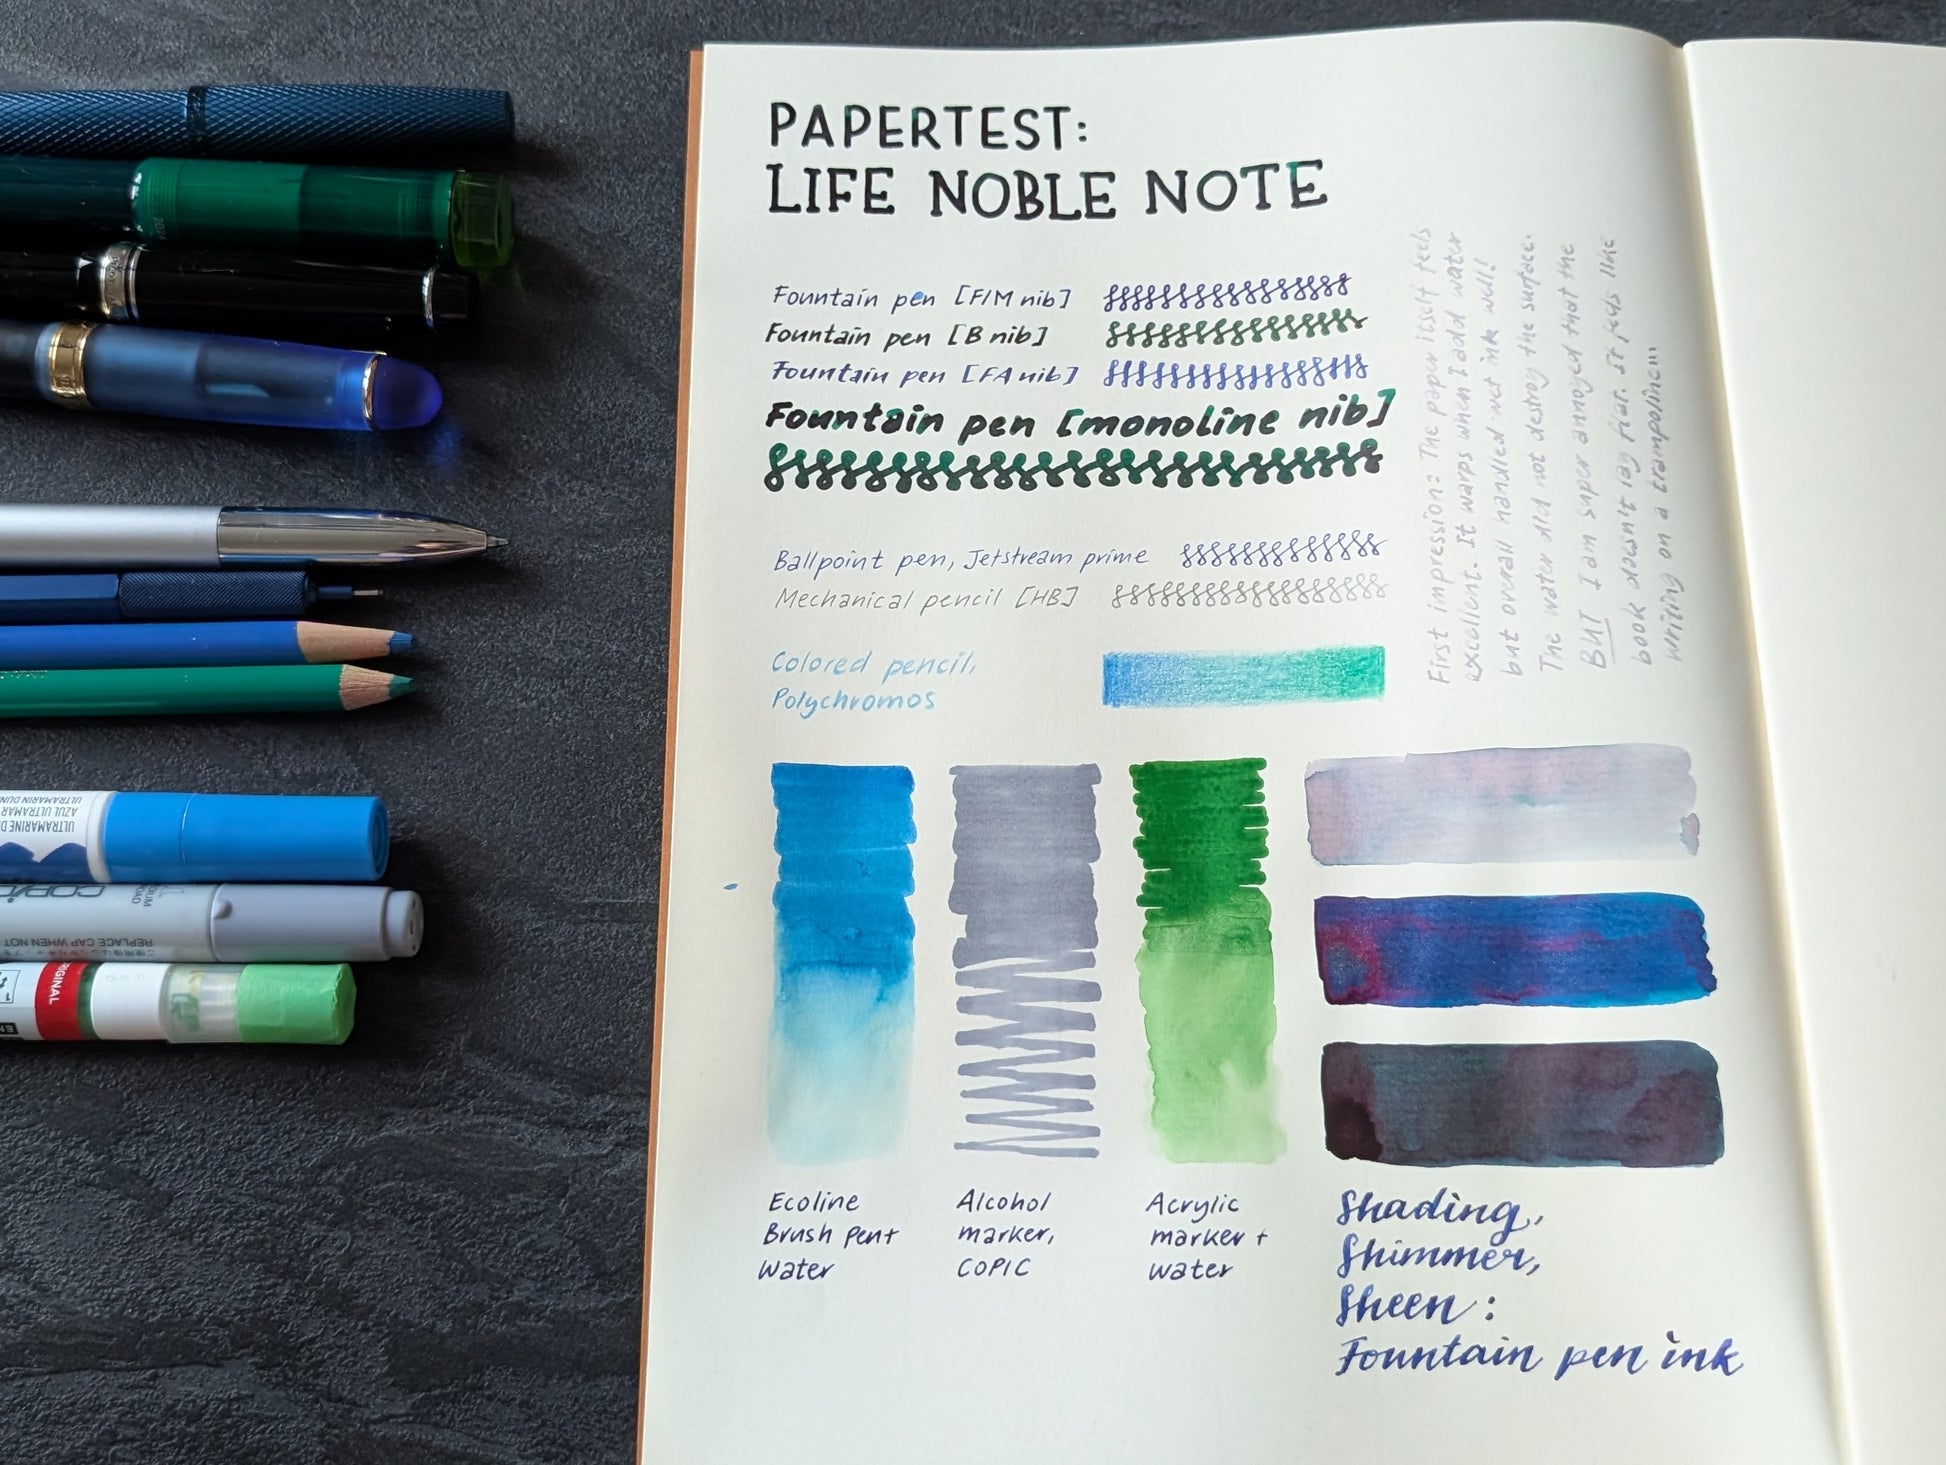 PAPERTEST:
LIFE NOBLE NOTE
Fountain pen [F/M nib]
Fountain pen [B nib]
Fountain pen [FA nib]
Fountain pen [monoline nib]
Ballpoint pen, Jetstream prime
Mechanical pencil [HB]
Colored pencil,
Polychromos
First impression: The paper itself feels
excellent. It warps when I add water
but overall handled wet ink well!
The water did not destroy the surface.
BUT I am super annoyed that the
book doesn't lay flat. It feels like
writing on a trampoline...
Ecoline
Brush pen+
Water
Alcohol
marker,
COPIC
Acrylic
marker +
water
Shading,
Shimmer,
Sheen:
Fountain pen ink
ULTRAMARINE
AZUL ULTRAMAR
ULTRAMARIN DUN
COPIC
REPLACE CAP WHEN NOT